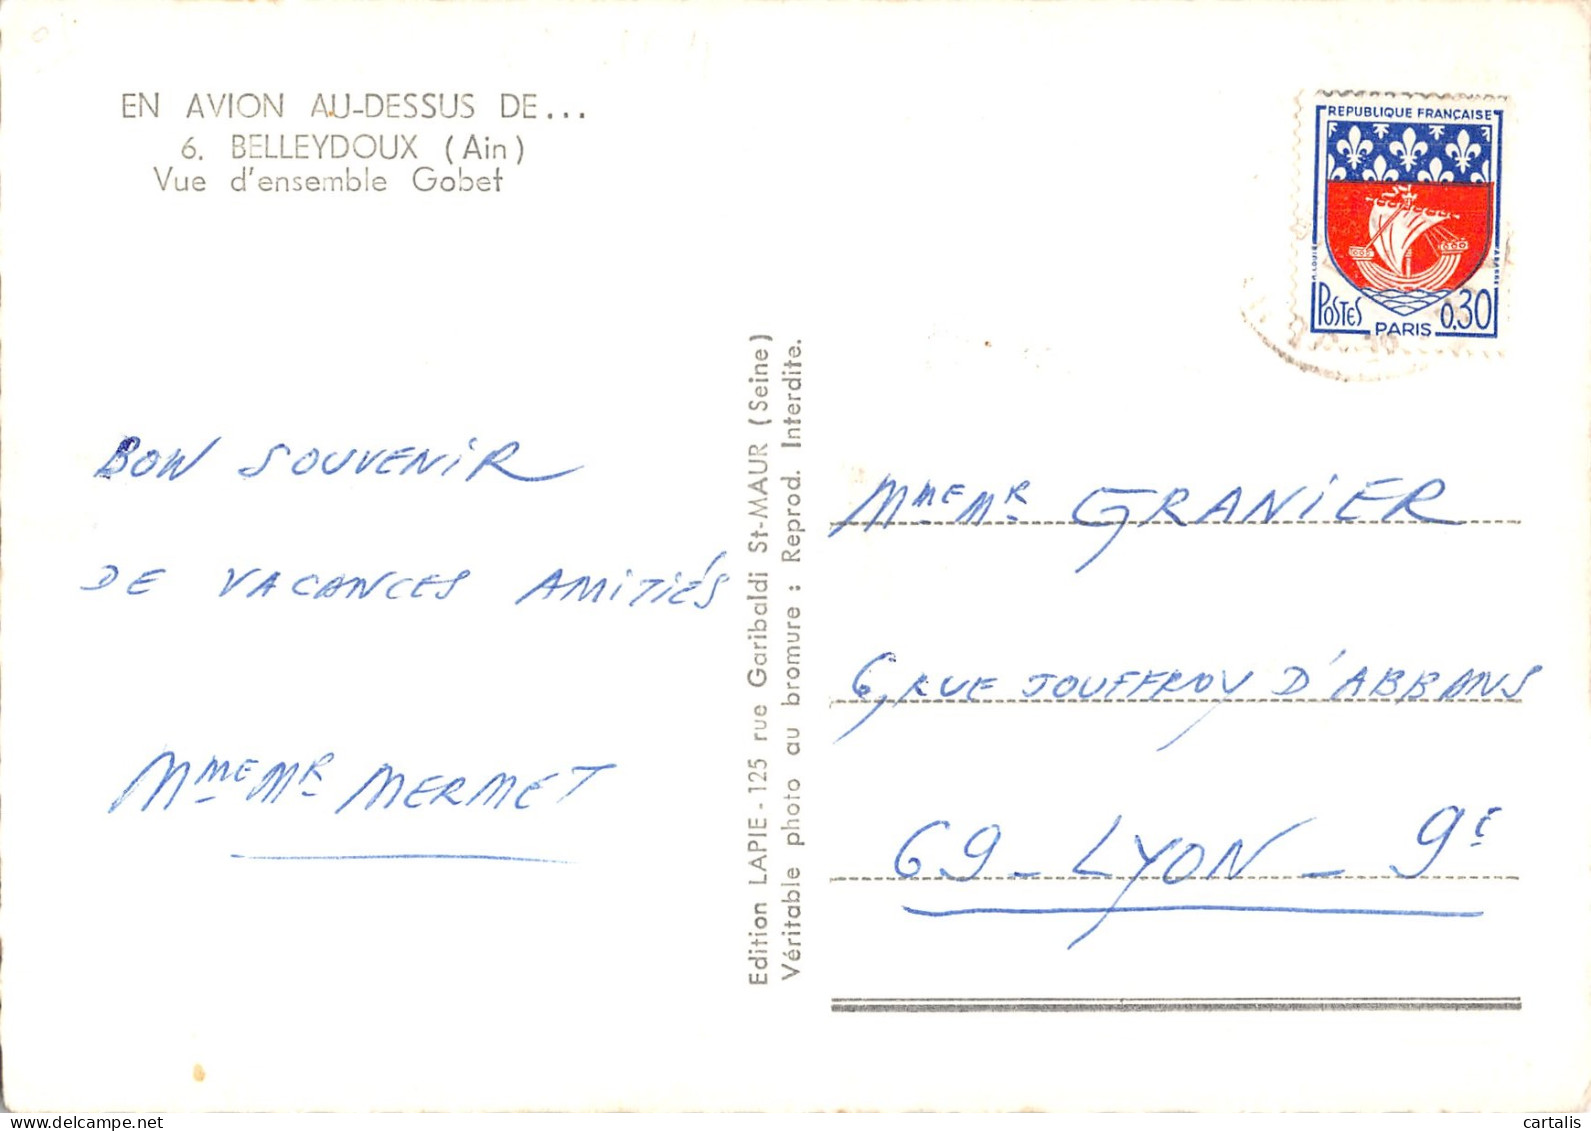 EN AVION AU-DESSUS DE...
6. BELLEYDOUX (Ain)
Vue d'ensemble Gobet
REPUBLIQUE FRANÇAISE
POSTES
0,30
PARIS
BON SOUVENIR
DE VACANCES AMITIÉS
MME MR MERMET
Edition LAPIE - 125 rue Garibaldi St-MAUR (Seine)
Véritable photo au bromure : Reprod. Interdite.
MME MR GRANIER
6, RUE JOUFFROY D'ABBANS
69 - LYON - 9E
cartalis
delcampe.net